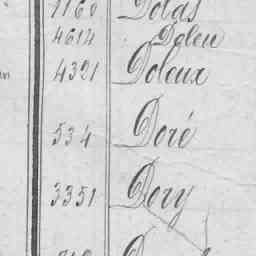 1160 Dolas
4614 Doleu
4321 Doleux
534 Doré
3351 Dory